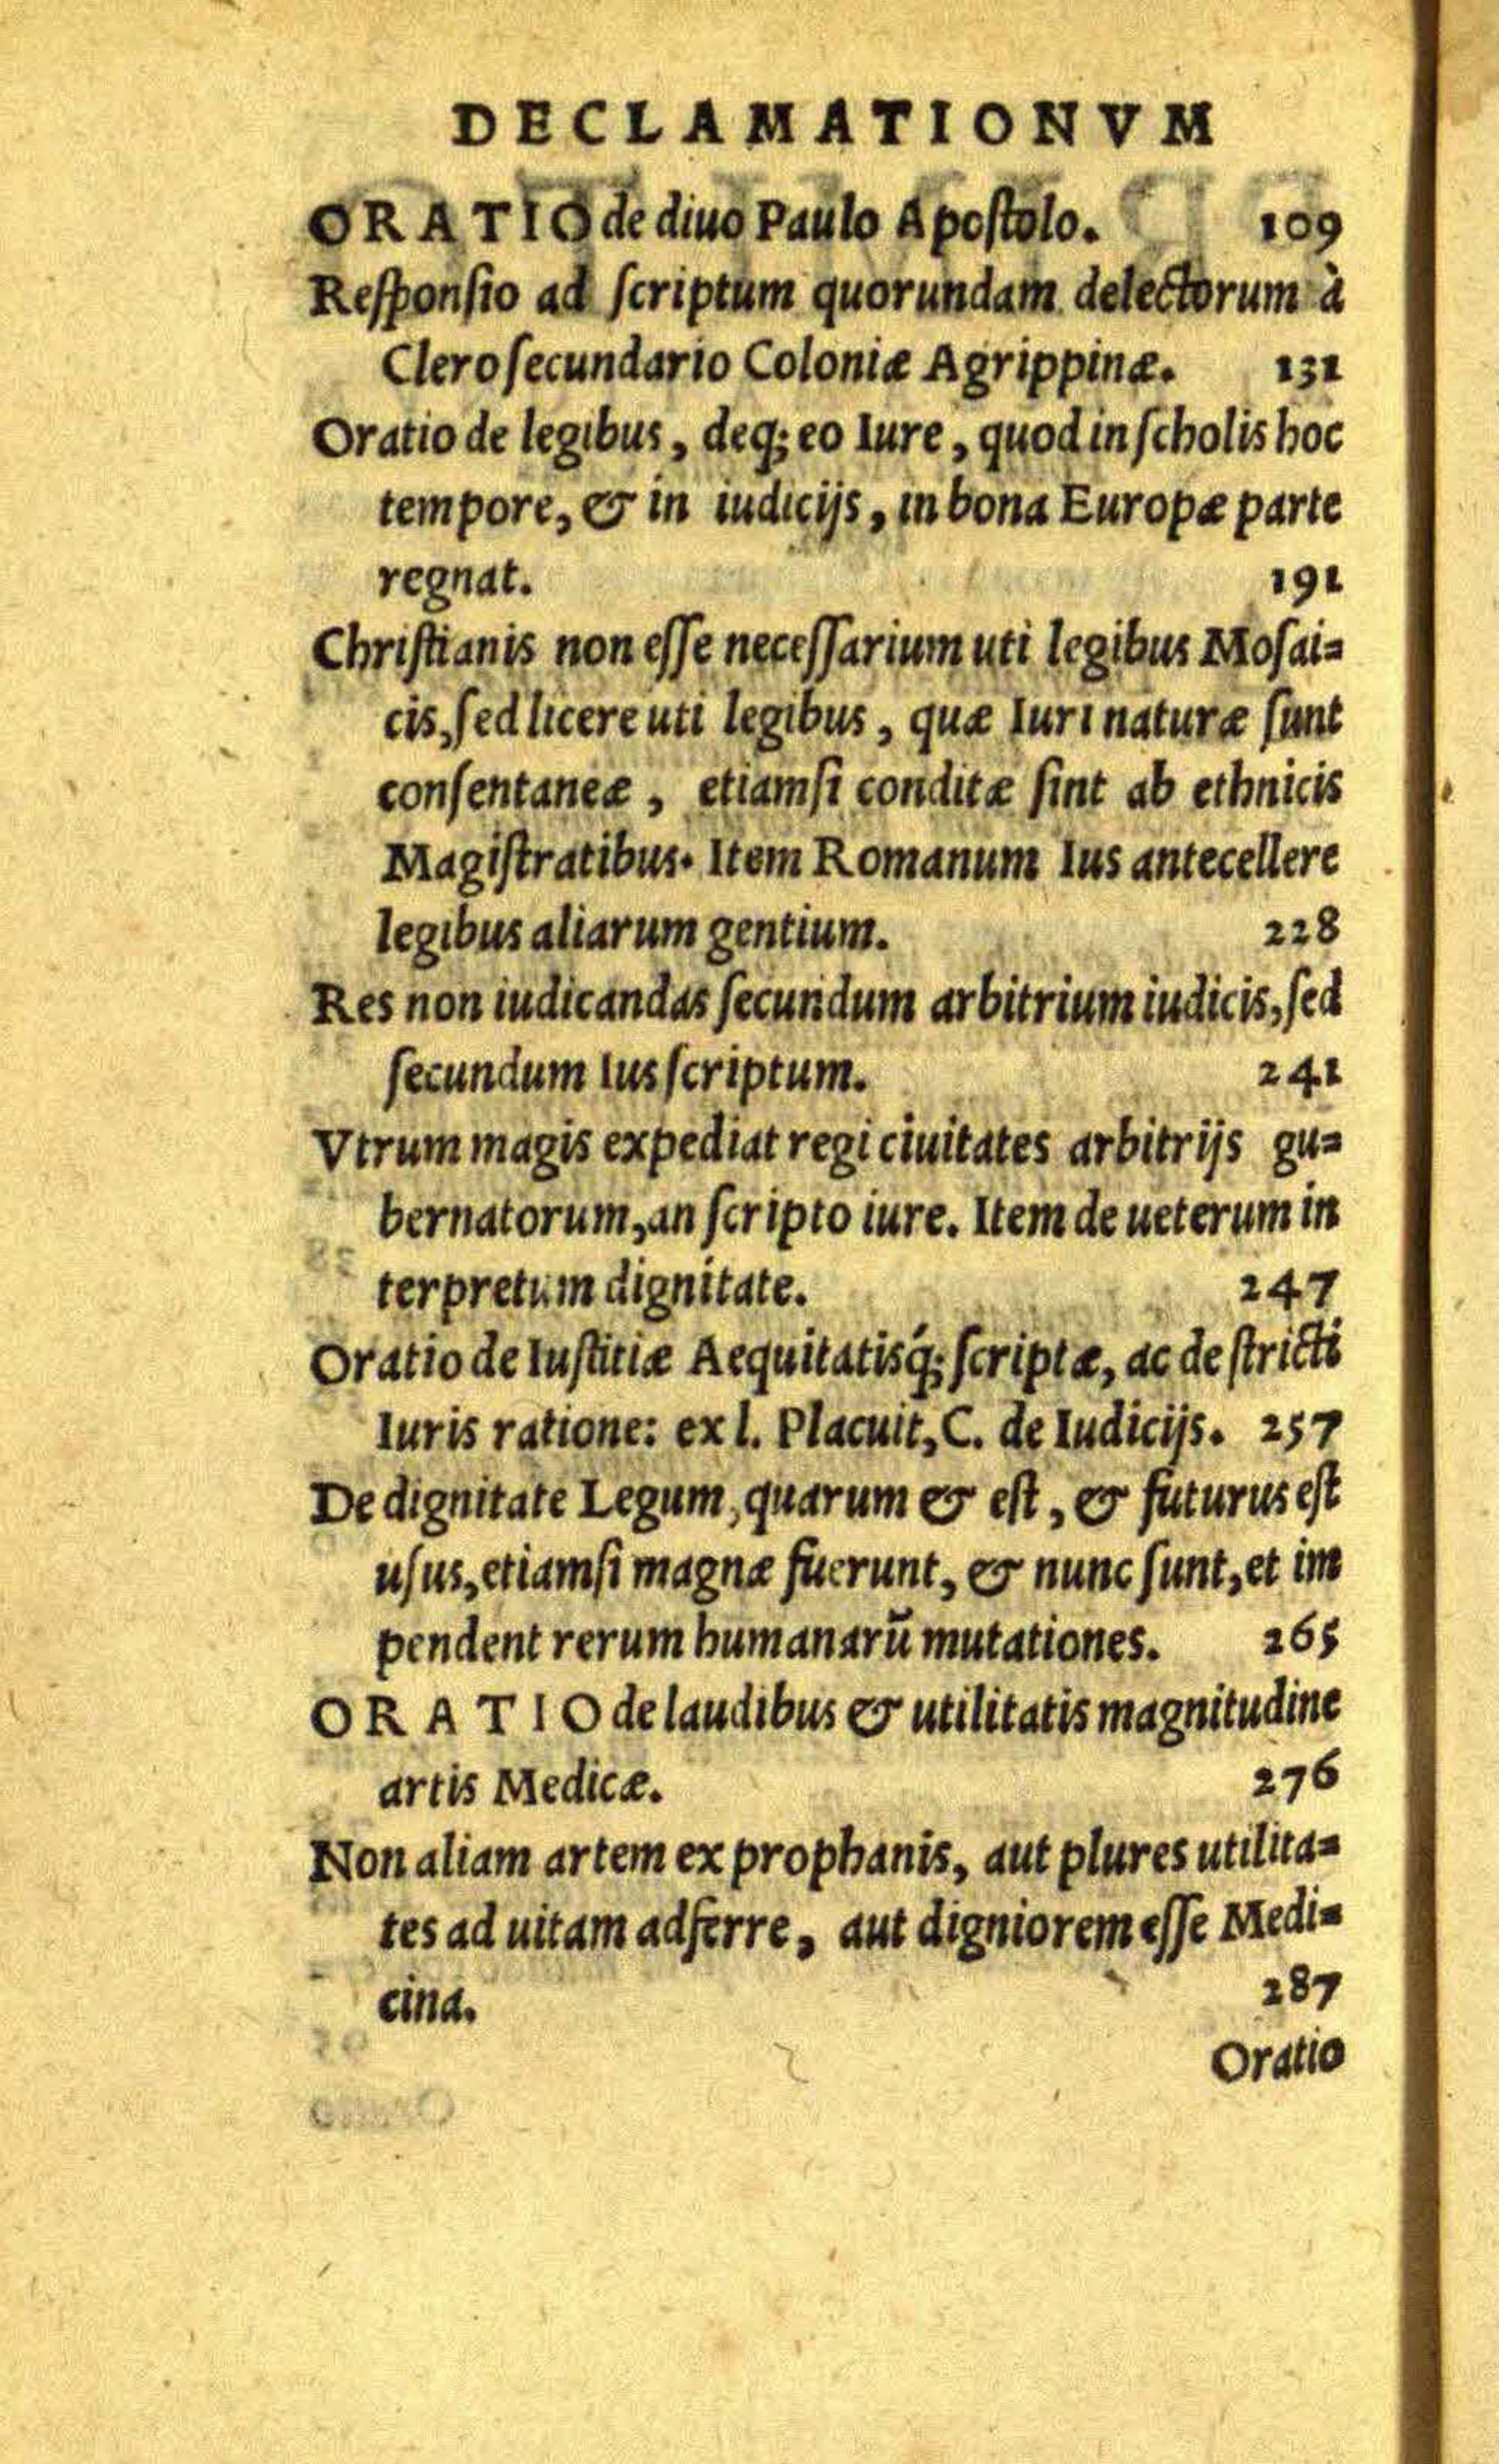 DECLAMATIONVM
ORATIO de diuo Paulo Apoſtolo. 109
Reſponſio ad ſcriptum quorundam delectorum à
Clero ſecundario Coloniæ Agrippinæ. 131
Oratio de legibus, deq; eo Iure, quod in ſcholis hoc
tempore, & in iudicijs, in bona Europæ parte
regnat. 191
Chriſtianis non eſſe neceſſarium uti legibus Moſai=
cis, ſed licere uti legibus, quæ Iuri naturæ ſunt
conſentaneæ, etiamſi conditæ ſint ab ethnicis
Magiſtratibus. Item Romanum Ius antecellere
legibus aliarum gentium. 228
Res non iudicandas ſecundum arbitrium iudicis, ſed
ſecundum Ius ſcriptum. 241
Vtrum magis expediat regi ciuitates arbitrijs gu=
bernatorum, an ſcripto iure. Item de ueterum in
terpretum dignitate. 247
Oratio de Iuſtitiæ Aequitatisq́; ſcriptæ, ac de ſtricti
Iuris ratione: ex l. Placuit, C. de Iudicijs. 257
De dignitate Legum, quarum & eſt, & futurus eſt
uſus, etiamſi magnæ fuerunt, & nunc ſunt, et im
pendent rerum humanarū mutationes. 265
ORATIO de laudibus & utilitatis magnitudine
artis Medicæ. 276
Non aliam artem ex prophanis, aut plures utilita=
tes ad uitam adferre, aut digniorem eſſe Medi=
cina. 287
Oratio